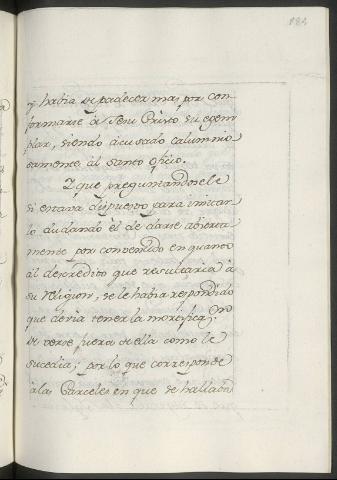 184
y habia de padecer mas por con
formarse á Jesu Cristo su egem
plar, siendo acusado calumnio
samente al santo oficio.
Y que preguntandosele
si estava dispuesto para imitar
lo dudando él de darse abierta
mente por convencido en quanto
al descredito que resultaria á
su religion, se le habia respondido
que devia tener la mortificaz.on
de verse fuera de ella como le
sucedia; por lo que corresponde
á las Carceles en que se hallava